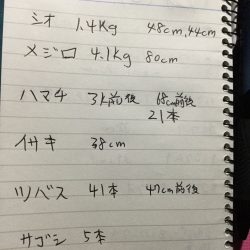 シオ 1.4Kg 48cm,44cm
メジロ 4.1kg 80cm
ハマチ 3k前後 68cm前後
21本
イサキ 38cm
ツバス 41本 47cm前後
サゴシ 5本